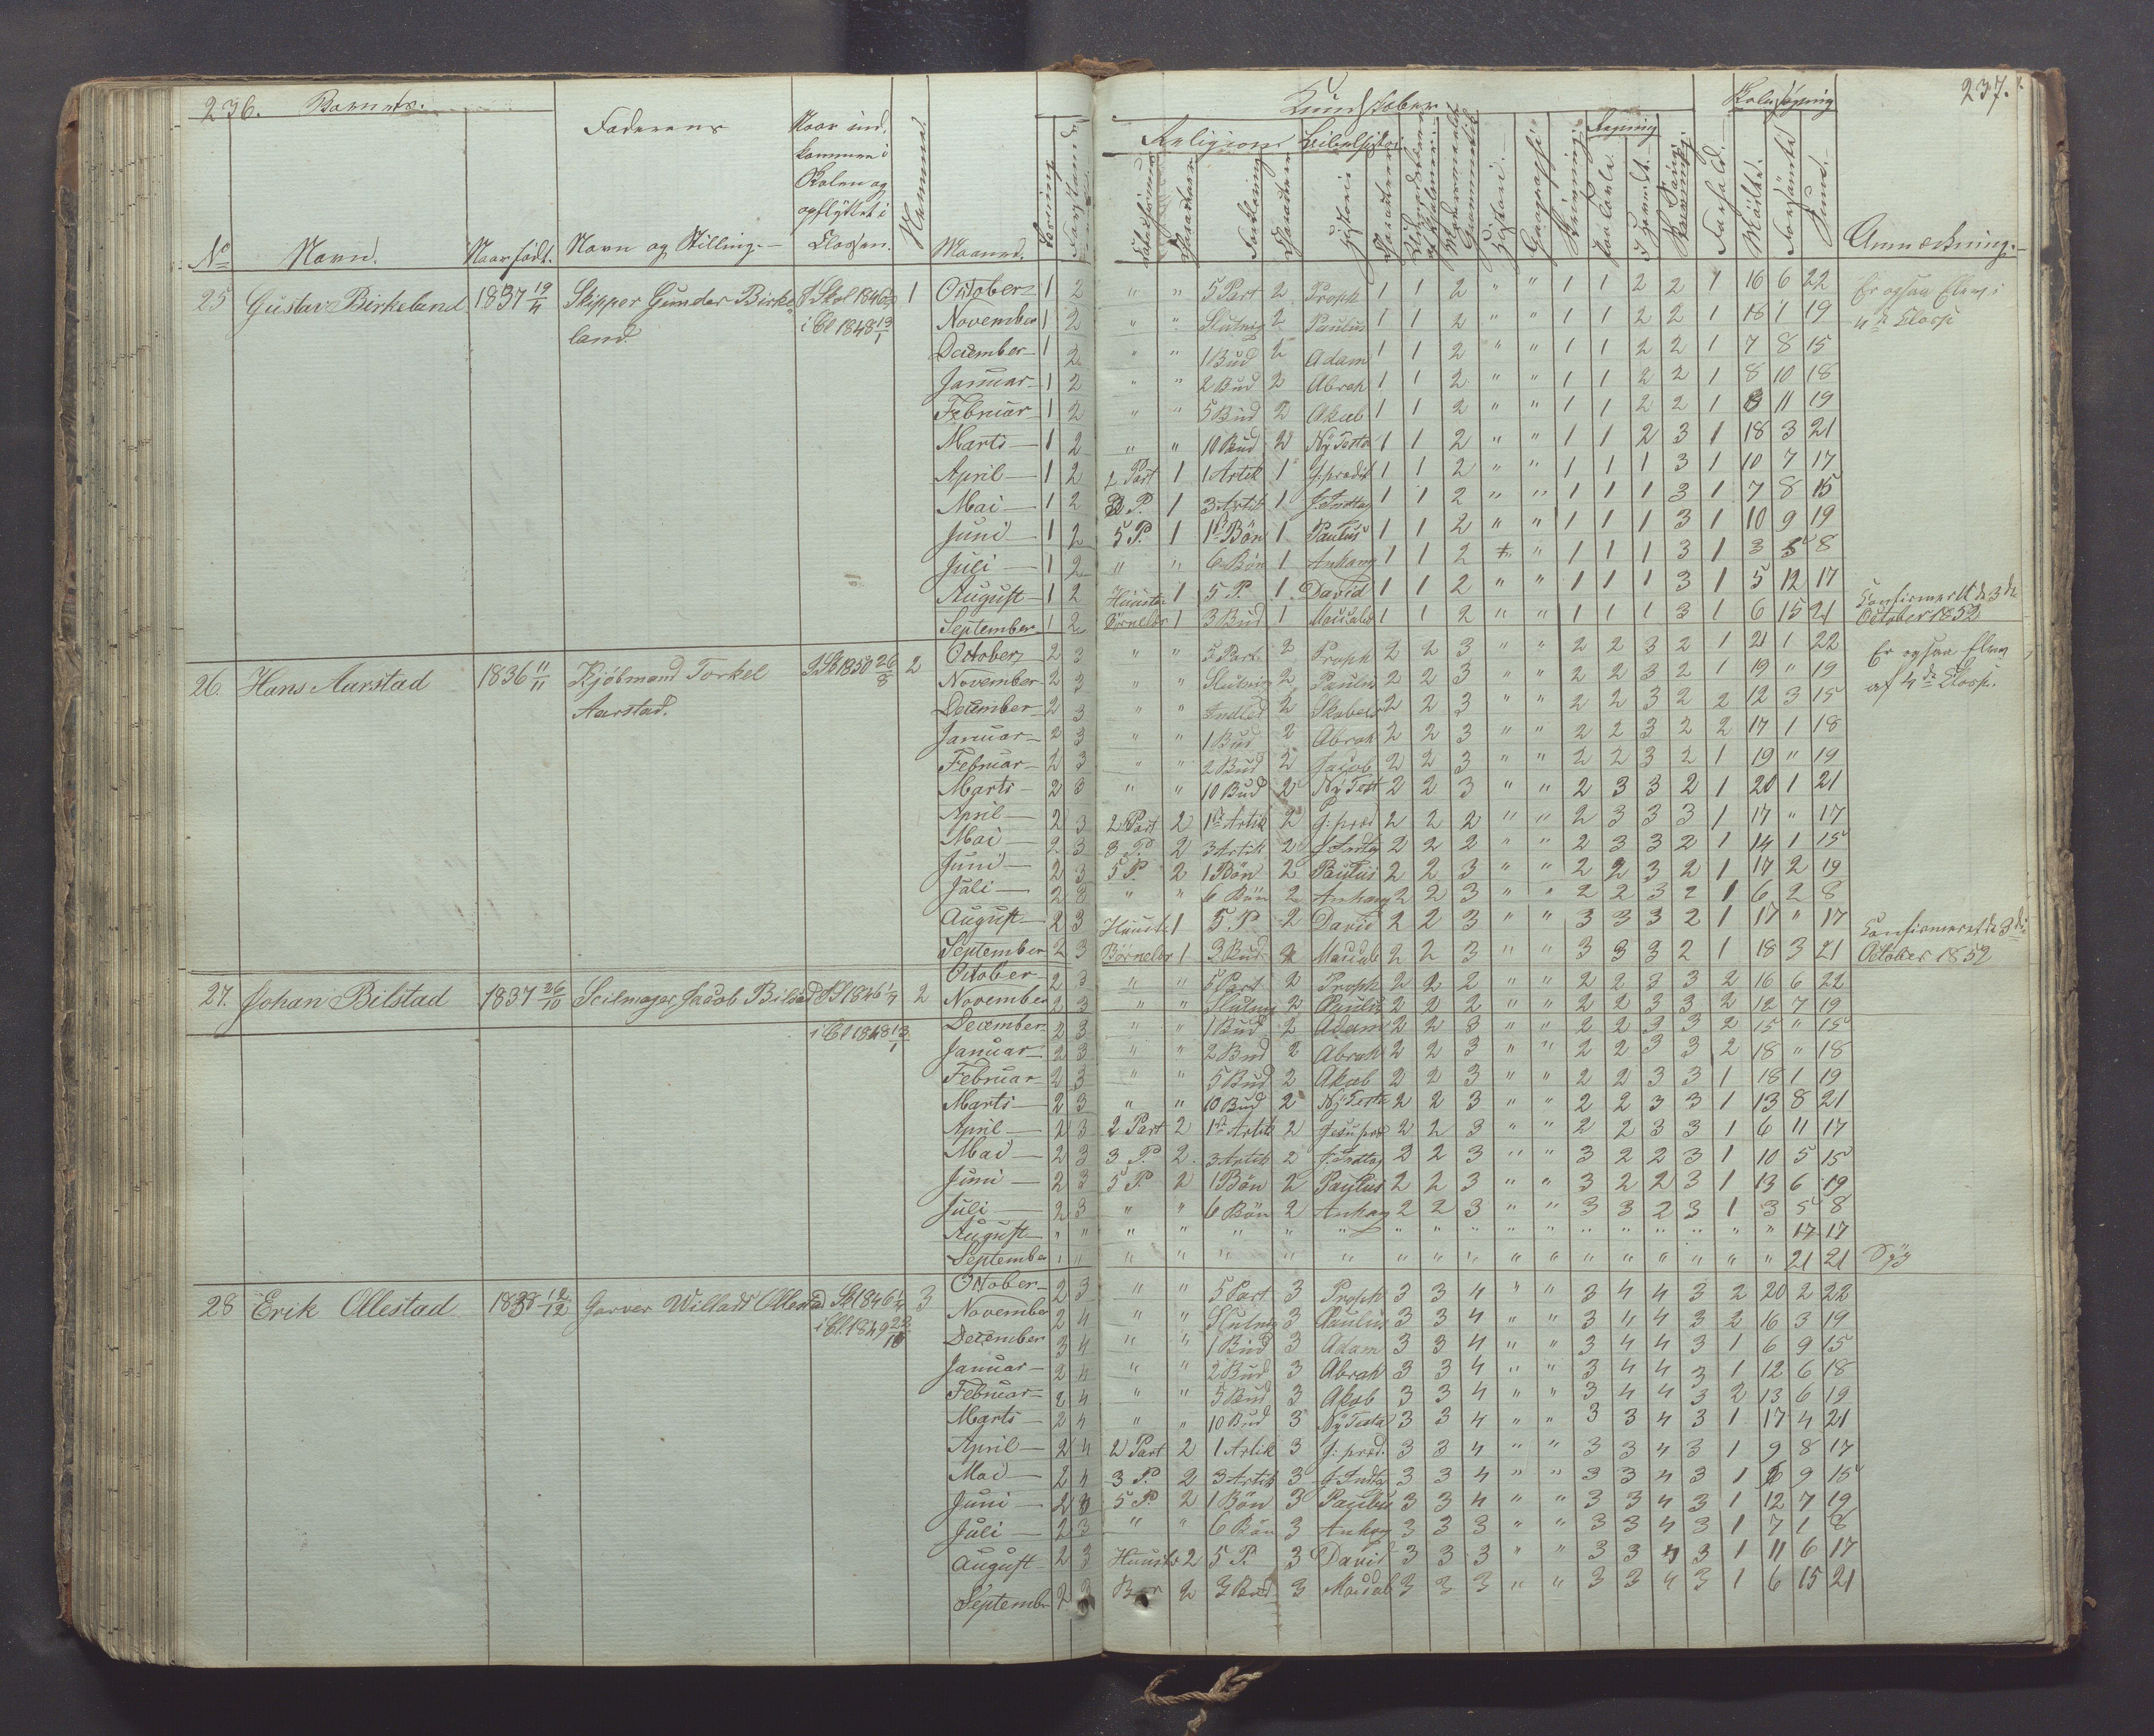 236. Barnets.
Faderens
Naar ind.
kommen i
Skolen og
opflyttet i
Classen.
No Navn. Naar født. Navn og Stilling. Maaned. Læsning
237.
Kundskaber
Religion Bibelhistorie
Skolesøgning
Forklaring Historie Geographi Skrivning Regning Sang Forhold. Mødte. Forsømte Sum. Anmærkning.
25 Gustav Birkeland 1837 19/4 Skipper Gunder Birke- i Skol 1846 1 October 1 2 " " 5 Part 2 Proph 1 1 2 " " 1 1 2 2 1 16 6 22 Er ogsaa Elev i
land. i Cl 1848 13/1 November 1 2 " " Slutnig 2 Paulus 1 1 2 " " 1 1 2 2 1 18 1 19 4de Classe
December 1 2 " " 1 Bud 2 Adam 1 1 2 " " 1 1 2 2 1 7 8 15
Januar 1 2 " " 2 Bud 2 Abrah 1 1 2 " " 1 1 2 2 1 8 10 18
Februar 1 2 " " 5 Bud 2 Akab 1 1 2 " " 1 1 2 2 1 8 11 19
Marts 1 2 " " 10 Bud 2 Ny Testa 1 1 2 " " 1 1 2 3 1 18 3 21
April 1 2 2 Part 1 1 Artik 1 J: prædik 1 1 2 " " 1 1 1 3 1 10 7 17
Mai 1 2 3 P. 1 3 Artik 1 J. Indtog 1 1 2 " " 1 1 1 3 1 7 8 15
Juni 1 2 5 P. 1 1ste Bön 1 Paulus 1 1 2 " " 1 1 1 3 1 10 9 19
Juli 1 2 " " 6 Bön 1 Anhang 1 1 2 " " 1 1 1 3 1 3 5 8
August 1 2 Huusta 1 5 P. 1 David 1 1 2 " " 1 1 1 3 1 5 12 17 Confirmeret de 3die
September 1 2 Börnelær 1 3 Bud 1 Maccab 1 1 2 " " 1 1 1 3 1 6 15 21 October 1852
26. Hans Aarstad 1836 11/11 Kjøbmand Torkel 1850 26/8 2 October 2 3 " " 5 Part 2 Proph 2 2 3 " " 2 2 3 2 1 21 1 22 Er ogsaa Elev
Aarstad. November 2 3 " " Slutnig 2 Paulus 2 2 3 " " 2 2 3 2 1 19 " 19 af 4de Classe.
December 2 3 " " Indled 2 Skabels 2 2 3 " " 2 2 3 2 2 12 3 15
Januar 2 3 " " 1 Bud 2 Abrah 2 2 3 " " 2 2 3 2 2 17 1 18
Februar 2 3 " " 2 Bud 2 Jacob 2 2 3 " " 2 2 3 2 1 19 " 19
Marts 2 3 " " 10 Bud 2 Ny Test 2 2 3 " " 2 3 3 2 1 20 1 21
April 2 3 2 Part 2 1ste Artik 2 J: præd 2 2 2 " " 2 3 3 3 1 17 " 17
Mai 2 3 3 P. 2 3 Artik 2 J. Indtog 2 2 2 " " 2 3 3 2 1 14 1 15
Juni 2 3 5 P. 2 1 Bön 2 Paulus 2 2 3 " " 2 2 3 2 1 17 2 19
Juli 2 3 " " 6 Bön 2 Anhang 2 2 3 " " 2 2 3 2 1 6 2 8
August 2 3 Huusta 1 5 P 2 David 2 2 3 " " 3 3 3 2 1 17 " 17 Confirmeret de 3die
September 2 3 Börnelær 1 3 Bud 2 Maccab 2 2 3 " " 3 3 3 2 1 18 3 21 October 1852
October 2 3 " " 5 Part 2 Proph 2 2 2 " " 2 2 3 3 2 16 6 22
27. Johan Bilstad 1837 26/10 Seilmager Jacob Bilstad 1846 2 November 2 3 " " Slutnig 2 Paulus 2 2 2 " " 2 2 3 3 2 12 7 19
i Cl 1848 13/1 December 2 3 " " 1 Bud 2 Adam 2 2 3 " " 2 2 3 3 2 15 " 15
Januar 2 3 " " 2 Bud 2 Abrah 2 2 3 " " 2 2 3 3 2 18 " 18
Februar 2 3 " " 5 Bud 2 Akab 2 2 3 " " 2 2 3 3 1 18 1 19
Marts 2 3 " " 10 Bud 2 Ny Testa 2 2 3 " " 2 2 3 3 1 13 8 21
April 2 3 2 Part 2 1ste Artik 2 Jesu præd 2 2 3 " " 2 2 3 3 1 6 11 17
Mai 2 3 3 P. 2. 3 Artik 2 J. Indtog 2 2 3 " " 3 2 2 3 1 10 5 15
Juni 2 3 5 P. 2 1 Bön 2 Paulus 2 2 3 " " 3 2 2 3 1 13 6 19
Juli 2 3 " " 6 Bön 2 Anhang 2 2 3 " " 3 3 2 3 1 3 5 8
August " " " " " " " " " " " " " " " " " " 17 17
September " " " " " " " " " " " " " " " " " " 21 21 Syg
October 2 3 " " 5 Part 3 Proph 3 3 4 " " 3 4 4 3 2 20 2 22
28 Erik Ollestad 1838 12/12 Garver Willads Ollestad Sk 1846 3 November 2 4 " " Slutnig 3 Paulus 3 3 4 " " 3 4 4 3 2 16 3 19
i Cl. 1849 22/10 December 3 4 " " 1 Bud 3 Adam 3 3 4 " " 3 4 4 3 1 6 9 15
Januar 2 4 " " 2 Bud 3 Abrah 3 3 4 " " 3 4 4 3 1 12 6 18
Februar 2 4 " " 5 Bud 3 Akab 3 3 4 " " 3 4 4 3 2 13 6 19
Marts 2 4 " " 10 Bud 3 Ny Testa 3 3 4 " " 3 3 4 3 1 17 4 21
April 2 4 2 Part 2 1 Artik 3 J: præd. 3 3 4 " " 3 3 4 3 1 9 8 17
Mai 2 4 3 P. 2 3 Artik 3 J. Indtog 3 3 4 " " 3 3 4 3 1 6 9 15
Juni 2 3 5 P. 2 1 Bön 3 Paulus 3 3 4 " " 3 3 4 3 1 12 7 19
Juli 2 3 " " 6 Bön 3 Anhang 3 3 3 " " 3 3 4 3 1 7 1 8
August 2 3 Huusta 2 5 P. 3 David 3 3 3 " " 3 3 4 3 1 11 6 17
September 2 3 Bør 2 3 Bud 3 Maccab 3 3 3 " " 3 3 4 3 1 6 15 21